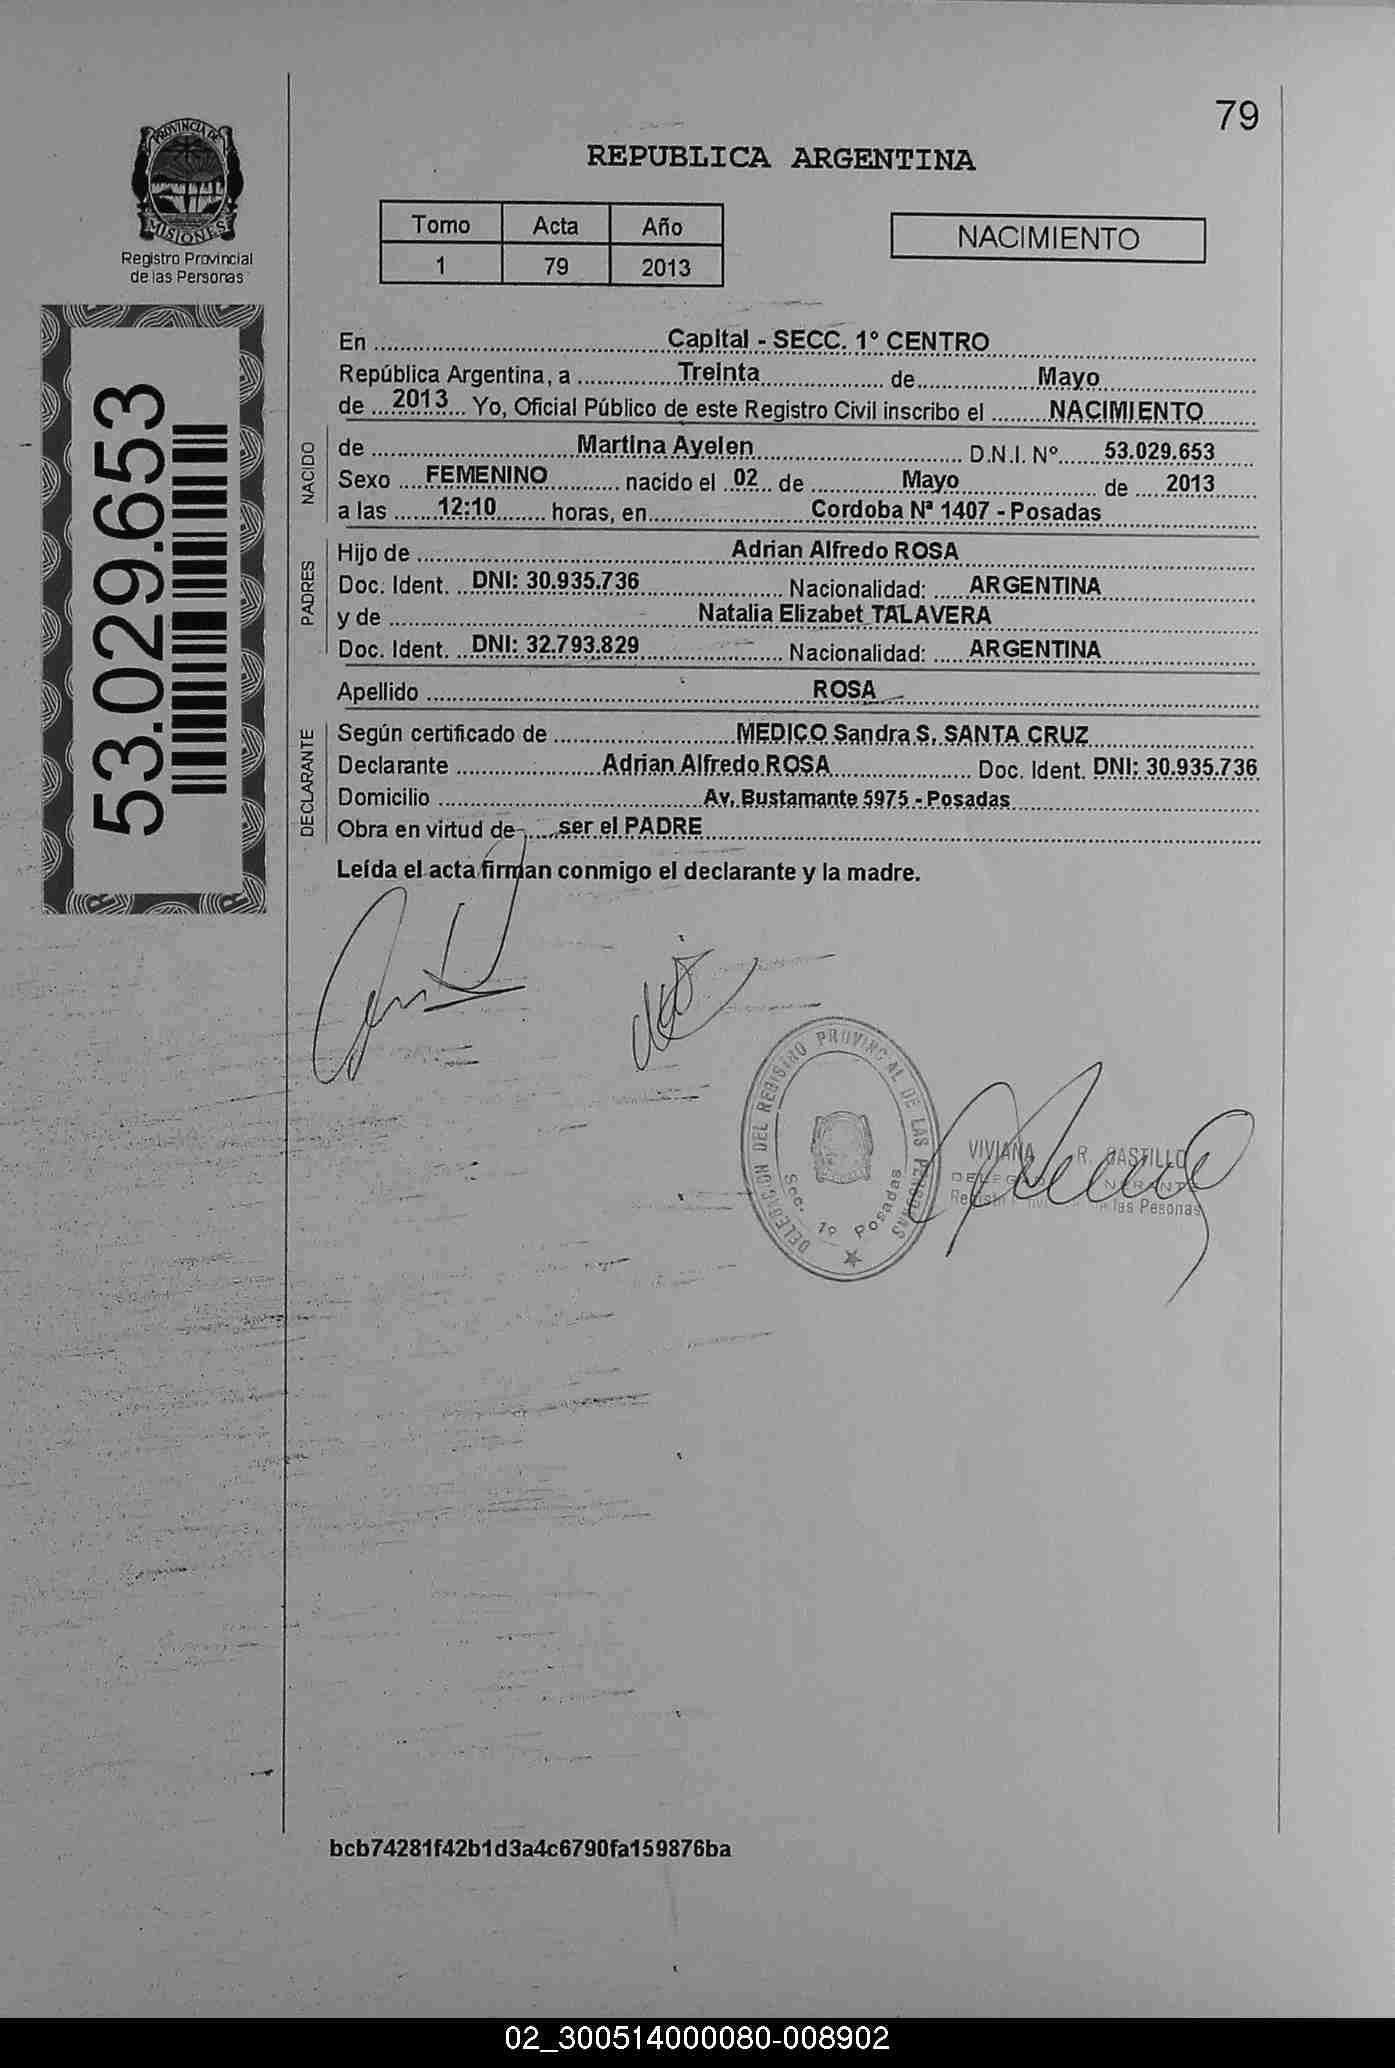 79
PROVINCIA DE
MISIONES
Registro Provincial
de las Personas
REPUBLICA ARGENTINA
Tomo Acta Año
1 79 2013
NACIMIENTO
53.029.653
En Capital - SECC. 1º CENTRO
República Argentina, a Treinta de Mayo
de 2013 Yo, Oficial Público de este Registro Civil inscribo el NACIMIENTO
NACIDO
de Martina Ayelen D.N.I. Nº 53.029.653
Sexo FEMENINO nacido el 02 de Mayo de 2013
a las 12:10 horas, en Cordoba Nª 1407 - Posadas
PADRES
Hijo de Adrian Alfredo ROSA
Doc. Ident. DNI: 30.935.736 Nacionalidad: ARGENTINA
y de Natalia Elizabet TALAVERA
Doc. Ident. DNI: 32.793.829 Nacionalidad: ARGENTINA
Apellido ROSA
DECLARANTE
Según certificado de MEDICO Sandra S. SANTA CRUZ
Declarante Adrian Alfredo ROSA Doc. Ident. DNI: 30.935.736
Domicilio Av. Bustamante 5975 - Posadas
Obra en virtud de ser el PADRE
Leída el acta firman conmigo el declarante y la madre.
DELEGACION DEL REGISTRO PROVINCIAL DE LAS PERSONAS
Sec. 1º Posadas
VIVIANA R. CASTILLO
las Pesonas
bcb74281f42b1d3a4c6790fa159876ba
02_300514000080-008902